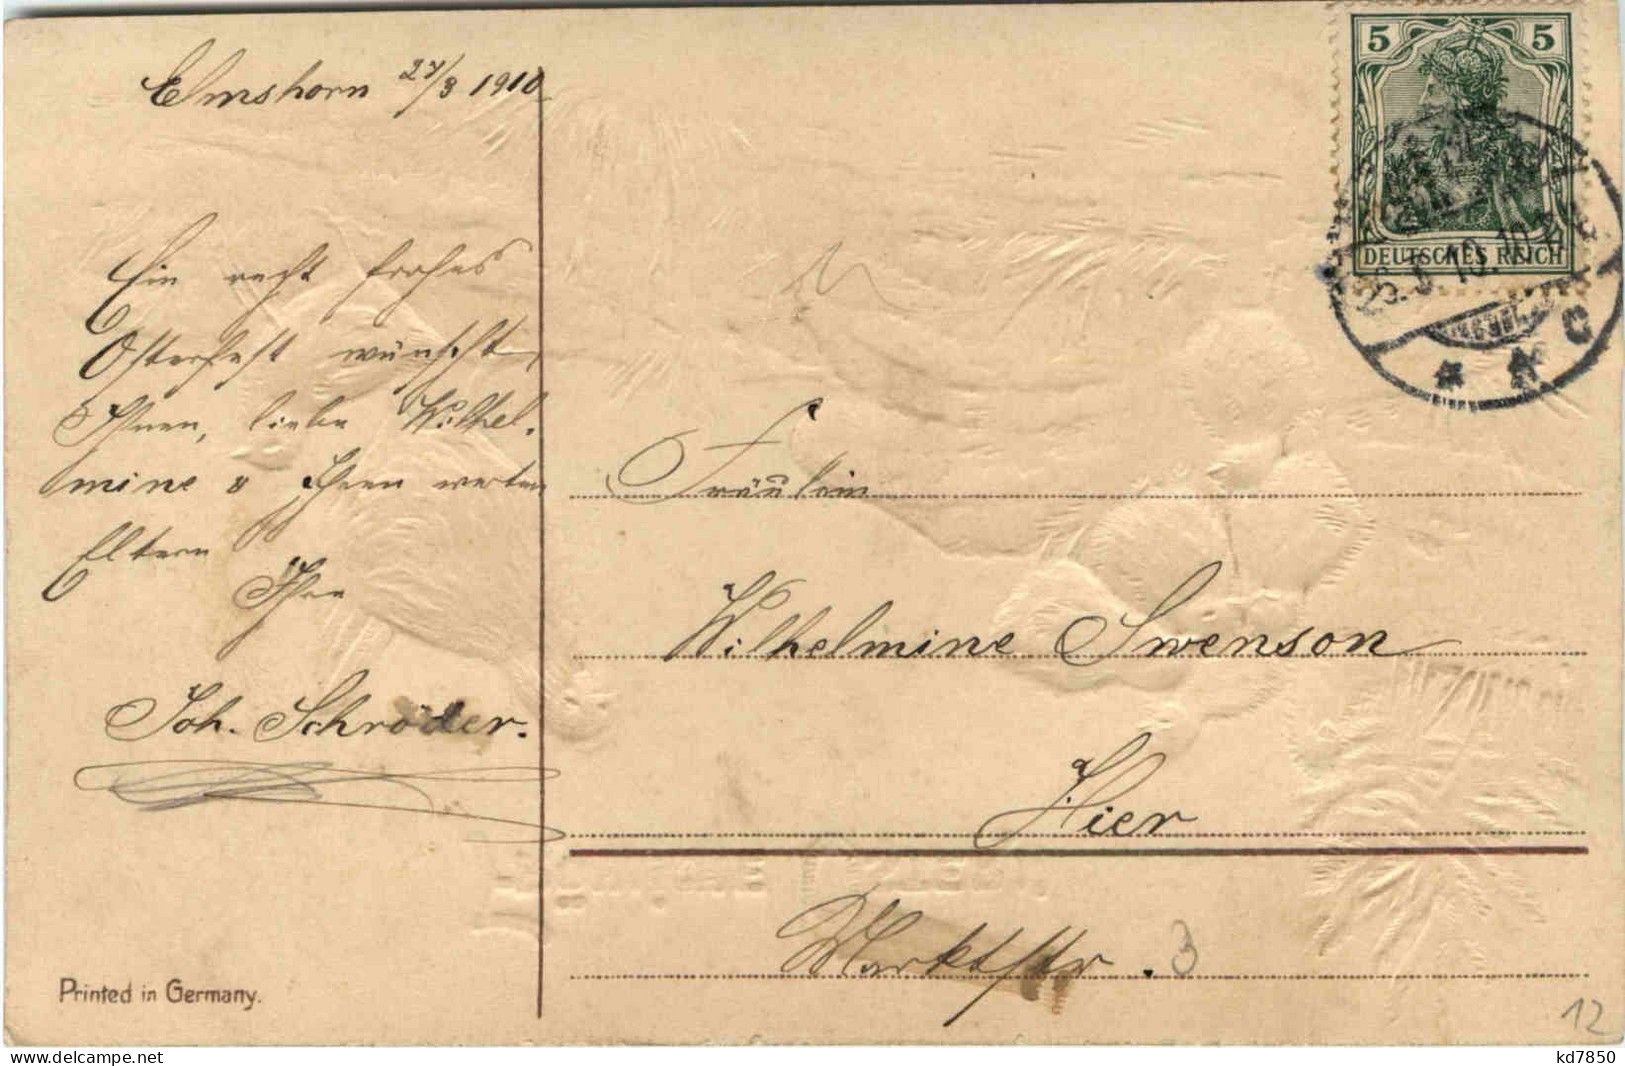 Elmshorn 27/3 1910
Ein recht frohes
Osterfest wünscht
Ihnen, liebe Wilhel-
mine u Ihren werten
Eltern
Ihr
Joh. Schröder.
Printed in Germany.
5 5
DEUTSCHES REICH
C
Fräulein
Wilhelmine Swenson
Hier
Marktstr. 3
12
kd7850